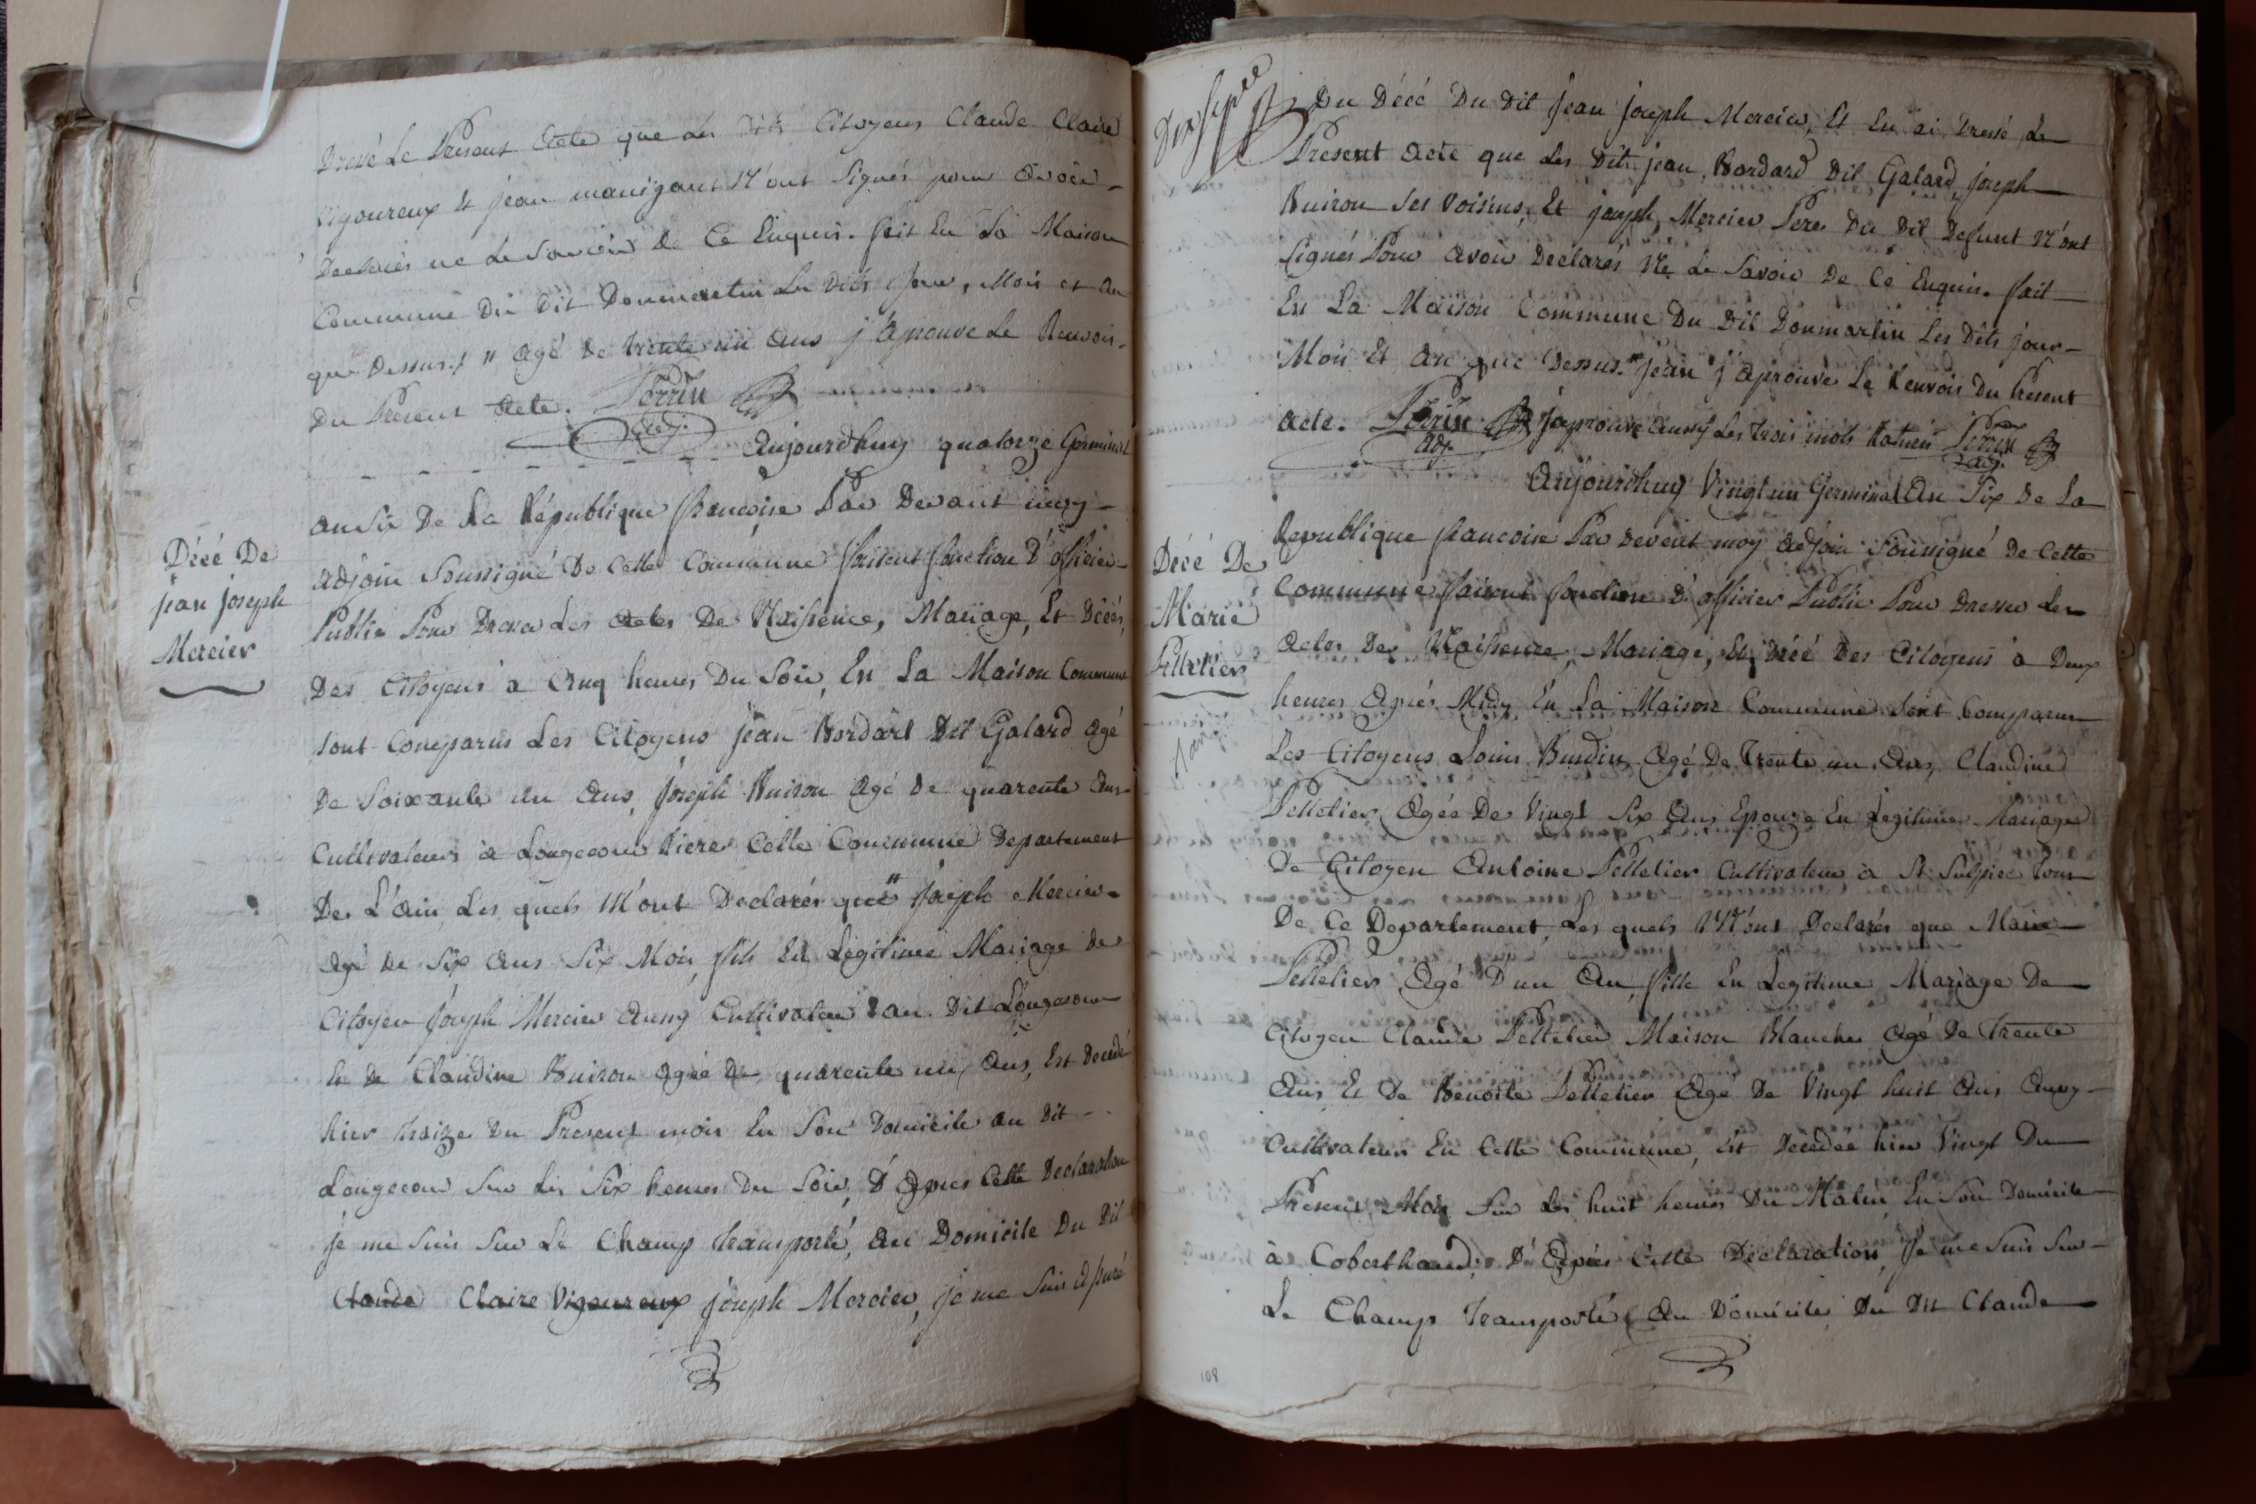 Dressé Le Present Acte que Les Dits Citoyens Claude Claire
Vigoureux Et jean mauigant N'ont Signés pour Avoir
Declarés ne Le Savoir De Ce Enquis. fait En La Maison
Commune Du Dit Dommartin Les Dits jour, Mois et An
que Dessus./ " agé De trente un Ans j'aprouve Le Renvois
Du Present Acte. Perrin
adj.
Aujourdhuy quatorze Germinal
an Six De La République francoise Par Devant moy
Décé De
jean joseph
Mercier
adjoin Soussigné De Cette Commune faisant fonction D'officier
Public Pour Dresser Les actes De Naissence, Mariage, Et Décés,
Des Citoyens à Cinq heures Du Soir, En La Maison Commune
sont Comparus Les Citoyens jean Bordard Dit Galard agé
De Soixante un Ans, joseph Buiron Agé De quarente Ans
Cultivateurs à Longecour Riere Cette Commune Departement
De L'ain Les quels M'ont Declarés que " joseph Mercier
Agé De Six Ans Six Mois, fils En Legitime Mariage de
Citoyen joseph Mercier Aussy Cultivateur au Dit Longecour
Et De Claudine Buiron agée De quarente un Ans, Est Decedé
hier traize Du Present mois En Son Domicile au Dit
Longecour Sur Les Six heures Du Soir, D'Apres Cette Declaration
je me Suis Sur Le Champ transporté, Au Domicile Du Dit
Claude Claire Vigoureux joseph Mercier, je me Suis Assuré
Dix Sept
Du Décé Du Dit jean joseph Mercier, Et En ai Dressé Le
Present Acte que Les Dits jean Bordard Dit Galard, joseph
Buiron Ses Voisins, Et joseph Mercier Pere Du Dit Defunt N'ont
Signés Pour avoir Declarés Ne Le Savoir De Ce Enquis. fait
En La Maison Commune Du Dit Dommartin Les Dits jour
Mois Et An que Dessus. " jean j'aprouve Le Renvois Du Present
Acte. Perrin j'aprouve Aussy Les trois mots Raturés Perrin
adj. adj.
Aujourdhuy Vingt un Germinal An Six De La
Republique francoise Par Devent moy Adjoin Soussigné De Cette
Décé De
Marie
Pelletier
Commune faisant fonction D'officier Public Pour Dresser Les
actes De Naissence, Mariage, Et Décé Des Citoyens à Deux
heures Après Midy En La Maison Commune Sont Comparus
Les Citoyens Louis Burdin Agé De Trente un Ans, Claudine
Pelletier Agée De Vingt Six Ans Epouze En Legitime Mariage
De Citoyen Antoine Pelletier Cultivateur à St Sulpice Tous
De Ce Departement, Les quels M'ont Declarés que Marie
Pelletier Agé D'un An, fille En Legitime Mariage De
Citoyen Claude Pelletier Maison Blanche Agé De Trente
Ans Et De Benoite Pelletier Agé De Vingt huit Ans Aussy
Cultivateurs En Cette Commune, Est Decedée hier Vingt Du
Present Mois Sur Les huit heures Du Matin En Son Domicile
à Coberthoud, D'Après Cette Declaration, je me Suis Sur
Le Champ Transporté Au Domicile Du Dit Claude
108